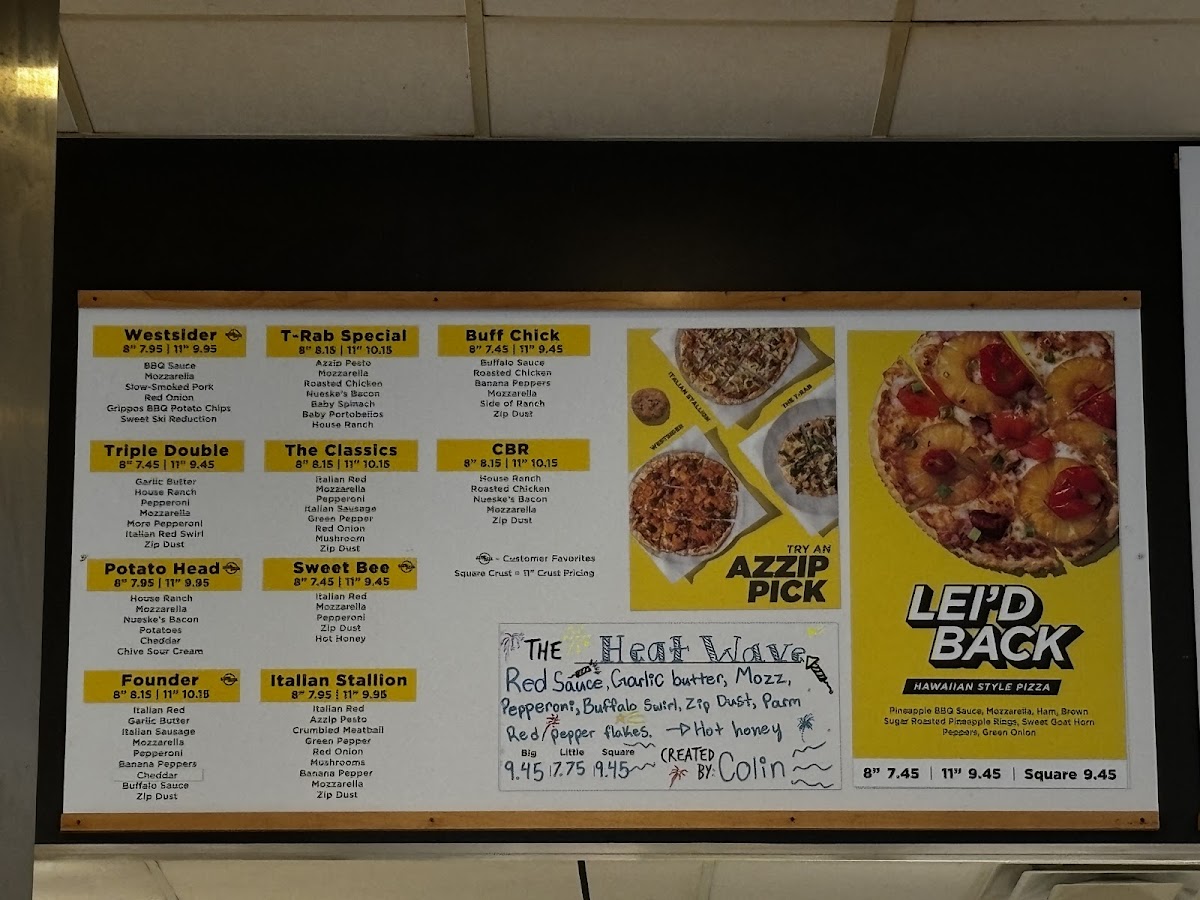 Westsider
8" 7.95 | 11" 9.95
BBQ Sauce
Mozzarella
Slow-Smoked Pork
Red Onion
Grippos BBQ Potato Chips
Sweet Ski Reduction
T-Rab Special
8" 8.15 | 11" 10.15
Azzip Pesto
Mozzarella
Roasted Chicken
Nueske's Bacon
Baby Spinach
Baby Portobellos
House Ranch
Buff Chick
8" 7.45 | 11" 9.45
Buffalo Sauce
Roasted Chicken
Banana Peppers
Mozzarella
Side of Ranch
Zip Dust
Triple Double
8" 7.45 | 11" 9.45
Garlic Butter
House Ranch
Pepperoni
Mozzarella
More Pepperoni
Italian Red Swirl
Zip Dust
The Classics
8" 8.15 | 11" 10.15
Italian Red
Mozzarella
Pepperoni
Italian Sausage
Green Pepper
Red Onion
Mushroom
Zip Dust
CBR
8" 8.15 | 11" 10.15
House Ranch
Roasted Chicken
Nueske's Bacon
Mozzarella
Zip Dust
- Customer Favorites
Square Crust = 11" Crust Pricing
Potato Head
8" 7.95 | 11" 9.95
House Ranch
Mozzarella
Nueske's Bacon
Potatoes
Cheddar
Chive Sour Cream
Sweet Bee
8" 7.45 | 11" 9.45
Italian Red
Mozzarella
Pepperoni
Zip Dust
Hot Honey
Founder
8" 8.15 | 11" 10.15
Italian Red
Garlic Butter
Italian Sausage
Mozzarella
Pepperoni
Banana Peppers
Cheddar
Buffalo Sauce
Zip Dust
Italian Stallion
8" 7.95 | 11" 9.95
Italian Red
Azzip Pesto
Crumbled Meatball
Green Pepper
Red Onion
Mushrooms
Banana Pepper
Mozzarella
Zip Dust
ITALIAN STALLION
THE T-RAB
WESTSIDER
TRY AN
AZZIP
PICK
THE Heat Wave
Red Sauce, Garlic butter, Mozz,
Pepperoni, Buffalo Swirl, Zip Dust, Parm
Red pepper flakes. → Hot honey
Big Little Square
9.45 7.75 9.45
CREATED
BY: Colin
LEI'D
BACK
HAWAIIAN STYLE PIZZA
Pineapple BBQ Sauce, Mozzarella, Ham, Brown
Sugar Roasted Pineapple Rings, Sweet Goat Horn
Peppers, Green Onion
8" 7.45 | 11" 9.45 | Square 9.45